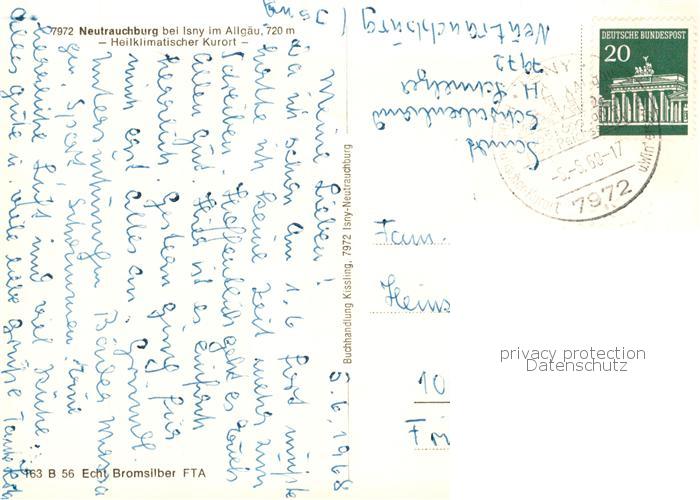 7972 Neutrauchburg bei Isny im Allgäu, 720 m
— Heilklimatischer Kurort —
5.6.1968
Meine Lieben!
Da ich schon am 1.6 fort müsste
hatte ich keine Zeit mehr zum
Schreiben. Hoffentlich geht es Euch
allen gut. Hier ist es einfach
herrlich. Gestern ging für
mich erst alles an. Gymnast.
Unterwasser Bäder, Massa
gen, Sport, Schwimmen. Eine
herrliche Luft und viel Kühe!
alles gute u. viele liebe Grüße Tante
Buchhandlung Kissling, 7972 Isny-Neutrauchburg
163 B 56 Echt Bromsilber FTA
Schreibenland
H. Schmelzer
7972
Neutrauchburg
Isny
DEUTSCHE BUNDESPOST
20
ISNY
-5.-6.68-17
7972
u.Winter
Fam.
Heins
10
privacy protection
Datenschutz